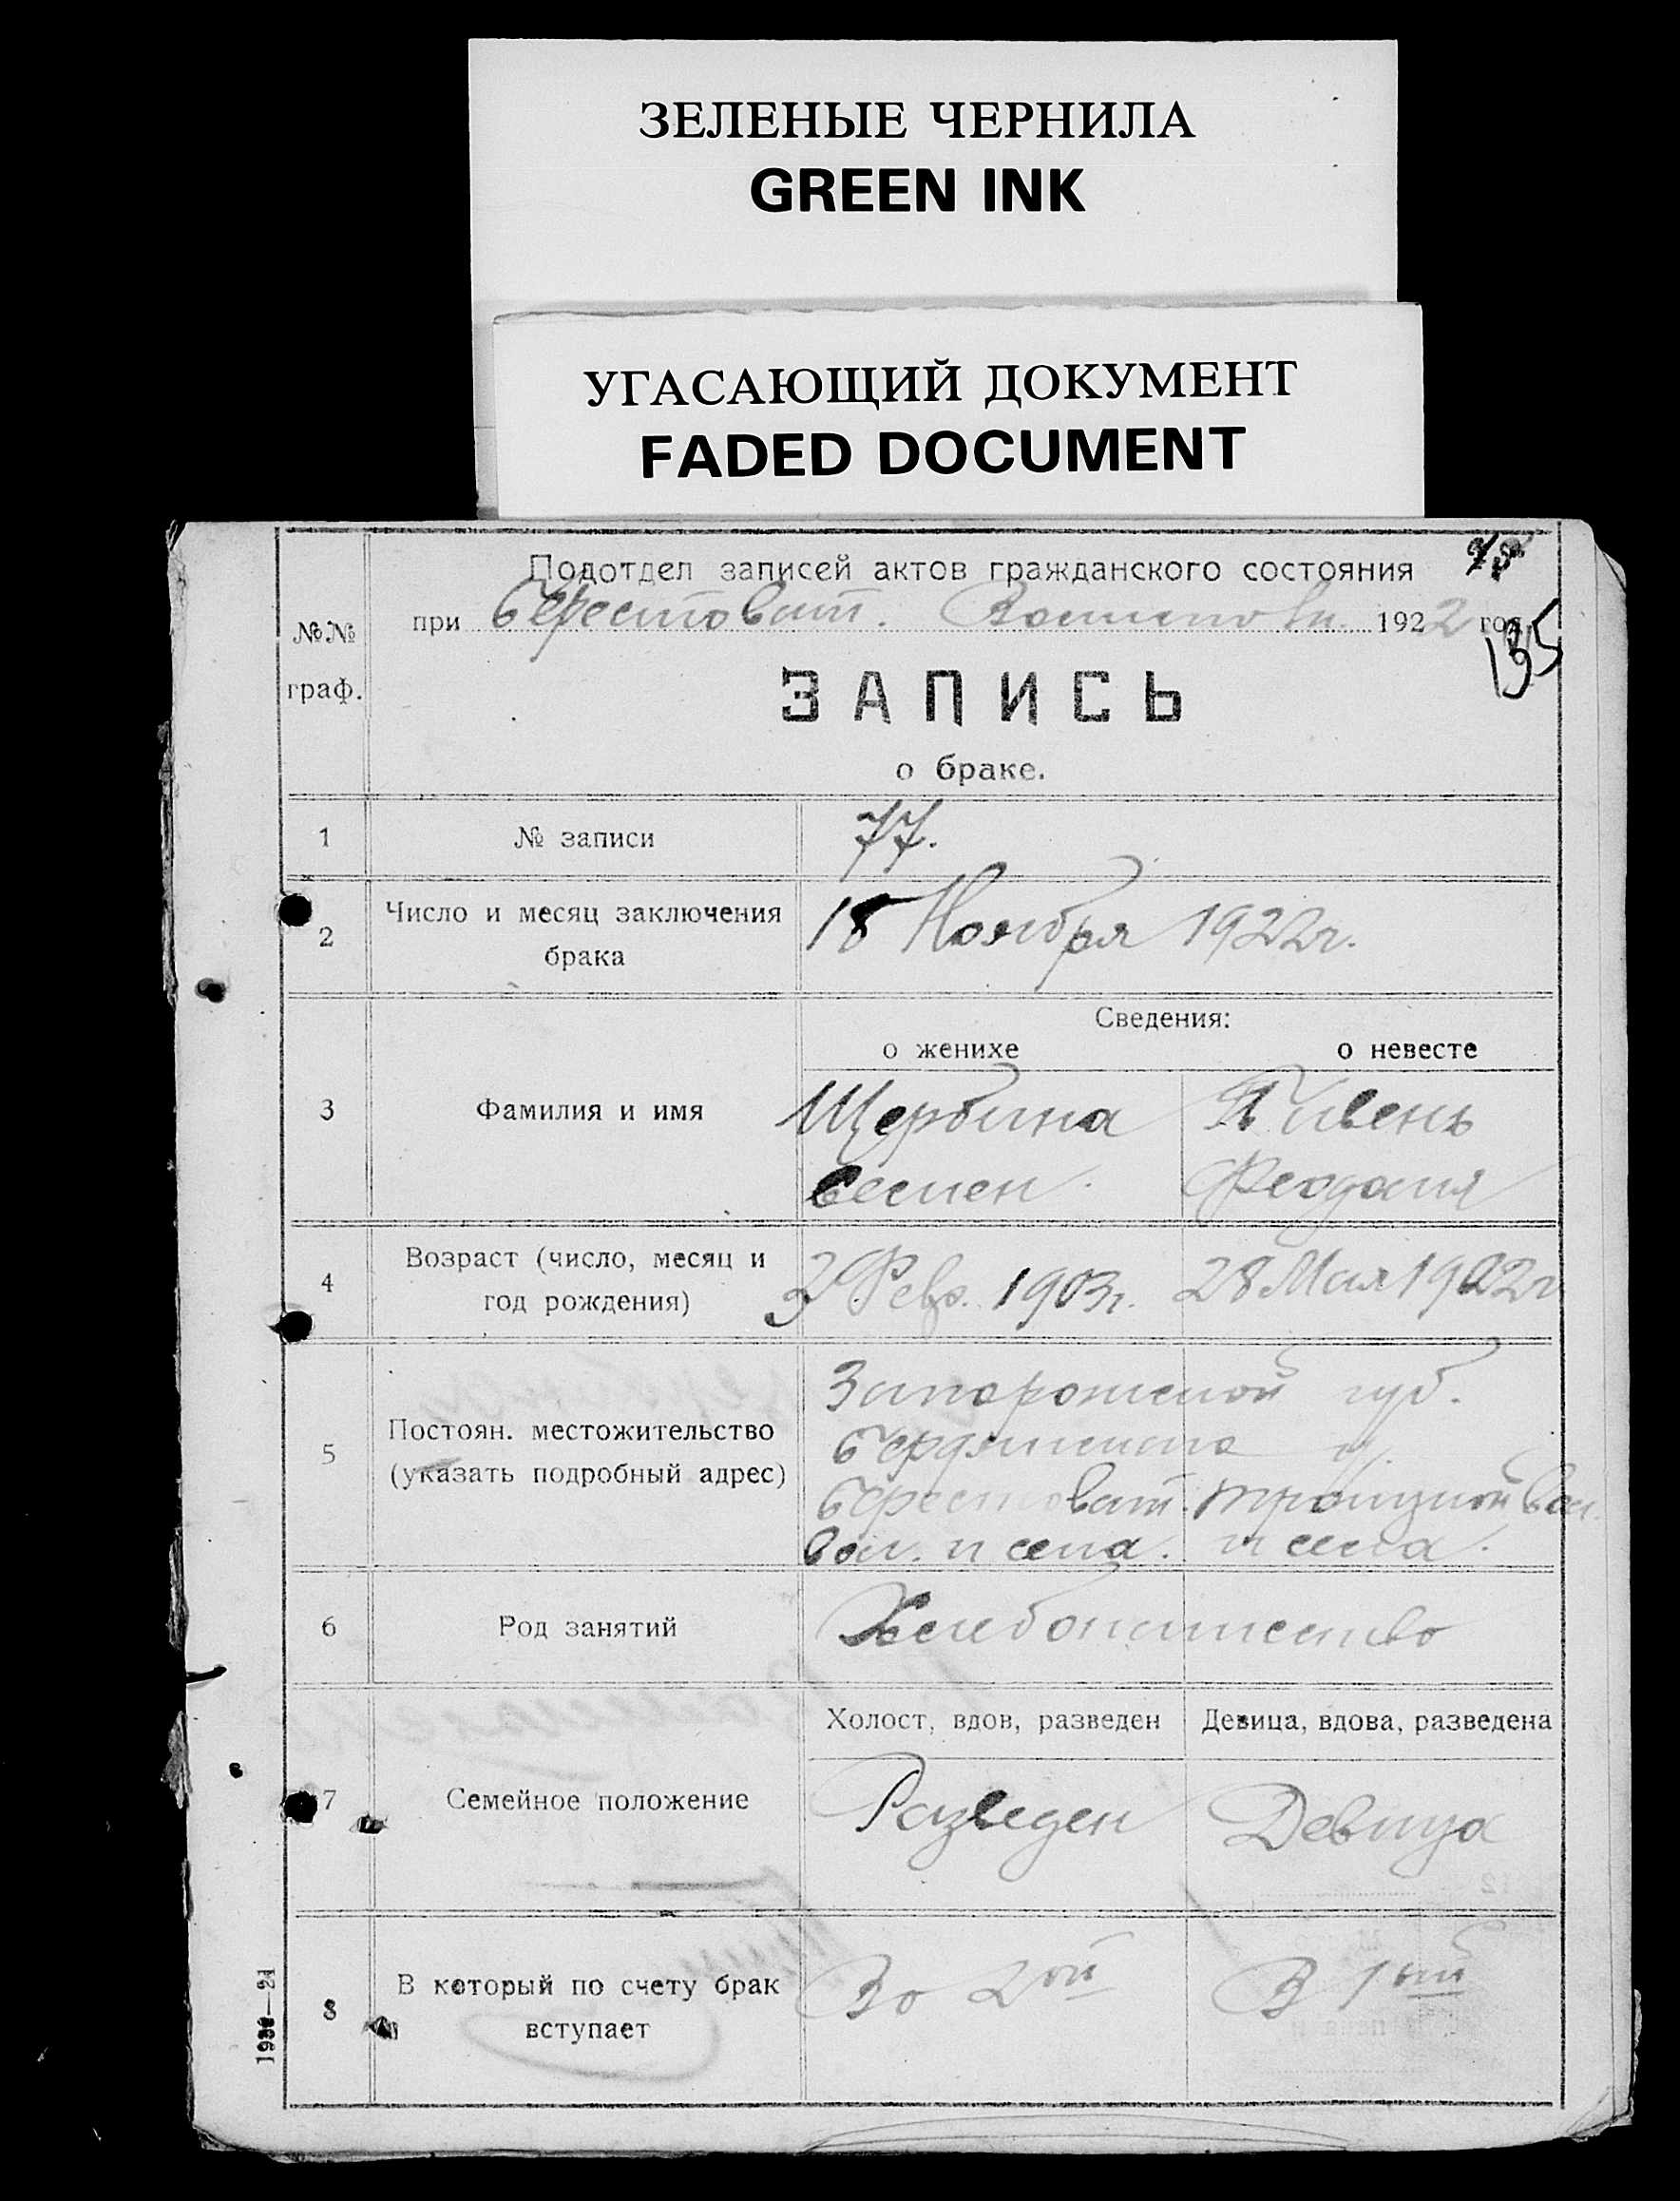 ЗЕЛЕНЫЕ ЧЕРНИЛА
GREEN INK
УГАСАЮЩИЙ ДОКУМЕНТ
FADED DOCUMENT
№№ граф.
Подотдел записей актов гражданского состояния
при Берестоват. 1922 год.
135
ЗАПИСЬ
о браке.
1 № записи 77.
2 Число и месяц заключения брака 18 Ноября 1922 г.
Сведения:
о женихе о невесте
3 Фамилия и имя Щербина Пивень
Семен Феодосия
4 Возраст (число, месяц и год рождения) 3 Февр. 1903 г. 28 Мая 1902 г
5 Постоян. местожительство (указать подробный адрес) Запорожской губ.
Бердянского у.
Берестоват. Троицкой вол.
вол. и села. и села.
6 Род занятий Хлебопашество
Холост, вдов, разведен Девица, вдова, разведена
7 Семейное положение Разведен Девица
8 В который по счету брак вступает Во 2ой В 1ый